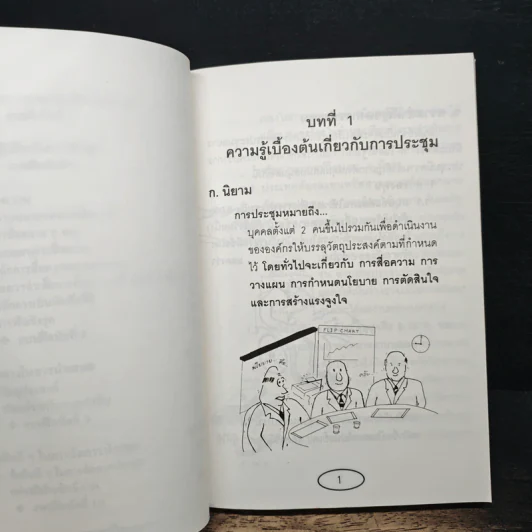 บทที่ 1
ความรู้เบื้องต้นเกี่ยวกับการประชุม
ก. นิยาม
การประชุมหมายถึง...
บุคคลตั้งแต่ 2 คนขึ้นไปรวมกันเพื่อดำเนินงาน
ขององค์กรให้บรรลุวัตถุประสงค์ตามที่กำหนด
ไว้ โดยทั่วไปจะเกี่ยวกับ การสื่อความ การ
วางแผน การกำหนดนโยบาย การตัดสินใจ
และการสร้างแรงจูงใจ
FLIP CHART
1